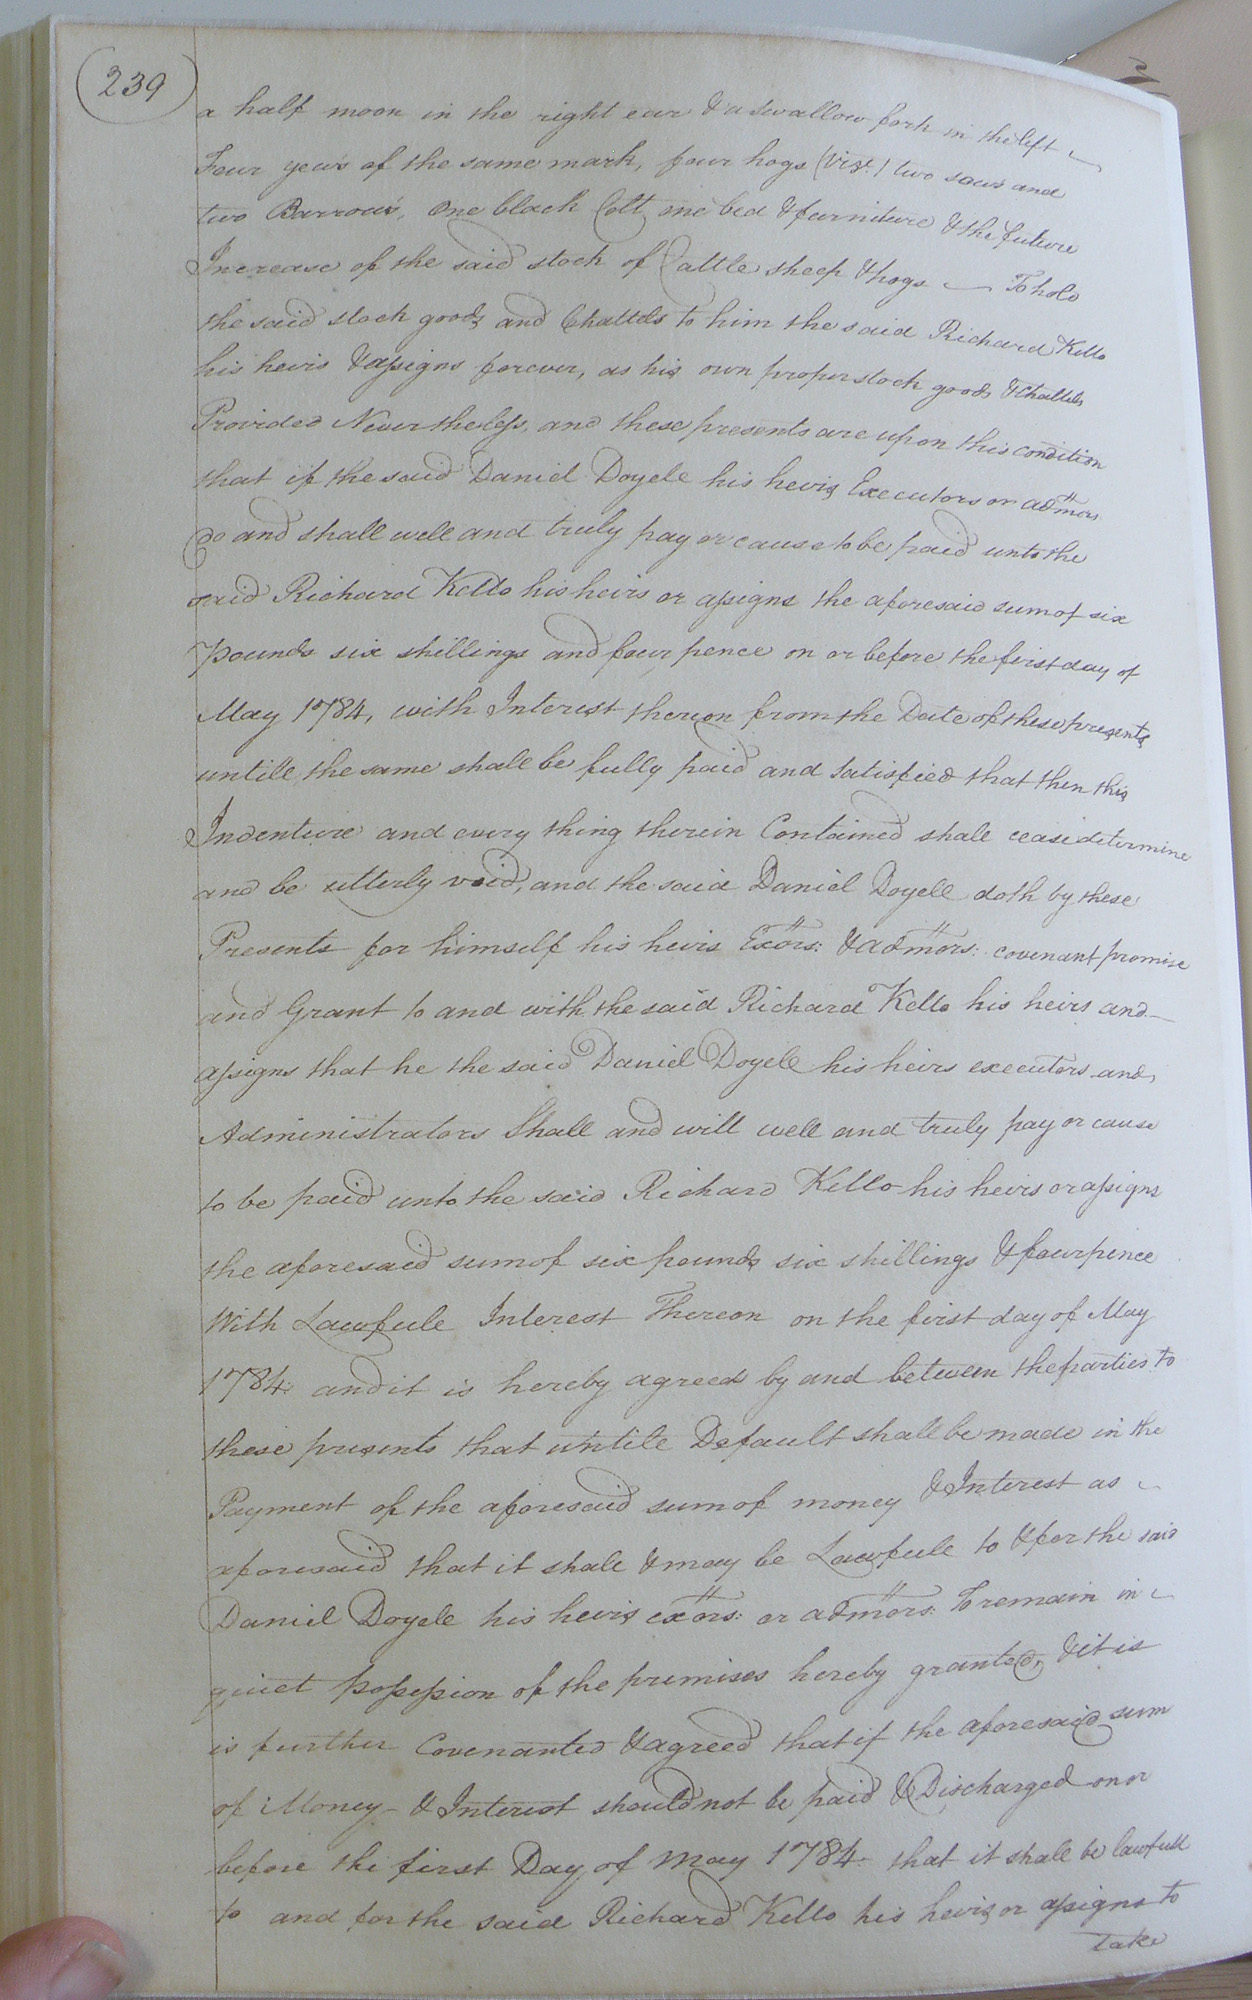 239
a half moon in the right ear & a swallow fork in the left
Four yews of the same mark, four hogs (Vizt.) two sows and
two Barrows, One black Colt, one bed & furniture & the future
Increase of the said stock of Cattle sheep & hogs — To hold
the said stock goods and Chattels to him the said Richard Kello
his heirs & assigns forever, as his own proper stock goods & Chattels
Provided Nevertheless, and these presents are upon this condition
that if the said Daniel Doyele his heirs Executors or admors
do and shall well and truly pay or cause to be paid unto the
said Richard Kello his heirs or assigns the aforesaid sum of six
pounds six shillings and four pence on or before the first day of
May 1784, with Interest thereon from the Date of these presents
untill the same shall be fully paid and satisfied that then this
Indenture and every thing therein Contained shall cease determine
and be utterly void, and the said Daniel Doyele doth by these
Presents for himself his heirs Exors: & admors: covenant promise
and Grant to and with the said Richard Kello his heirs and
assigns that he the said Daniel Doyele his heirs executors and
Administrators Shall and will well and truly pay or cause
to be paid unto the said Richard Kello his heirs or assigns
the aforesaid sum of six pounds six shillings & four pence
With Lawfule Interest Thereon on the first day of May
1784 and it is hereby agreed by and between the parties to
these presents that untile Default shall be made in the
Payment of the aforesaid sum of money & Interest as
aforesaid that it shale & may be Lawfule to & for the said
Daniel Doyele his heirs exors: or admors: To remain in
quiet possession of the premises hereby granted, & it is
is further Covenanted & agreed that if the aforesaid sum
of Money & Interest should not be paid & Discharged on or
before the first Day of May 1784 that it shall be lawfull
to and for the said Richard Kello his heirs or assigns to
take